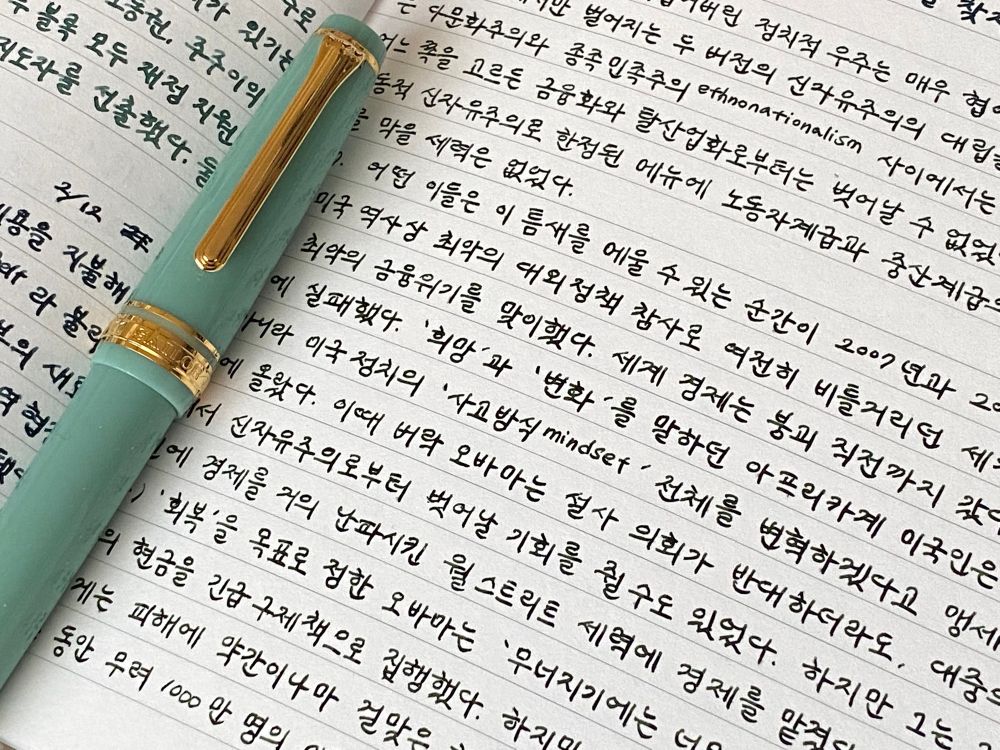 도권, 주주이의
블록 모두 재정 지원
지도자를 선출했다.
3/12
비용을 지불해
라 불리
역 협정
버린 정치적 우주는 매우 협
벌어지는 두 버전의 신자유주의의 대립
다문화주의와 종족민족주의 ethnonationalism 사이에서는
어느 쪽을 고르든 금융화와 탈산업화로부터는 벗어날 수 없었
동적 신자유주의로 한정된 메뉴에 노동자계급과 중산계급
를 막을 세력은 없었다.
어떤 이들은 이 틈새를 메울 수 있는 순간이 2007년과 20
미국 역사상 최악의 대외정책 참사로 여전히 비틀거리던 세
최악의 금융위기를 맞이했다. 세계 경제는 붕괴 직전까지 갔
에 실패했다. '희망'과 '변화'를 말하던 아프리카계 미국인은
아니라 미국 정치의 '사고방식mindset' 전체를 변혁하겠다고 맹세
에 올랐다. 이때 버락 오바마는 설사 의회가 반대하더라도, 대중의
서 신자유주의로부터 벗어날 기회를 쥘 수도 있었다. 하지만 그는
에 경제를 거의 난파시킨 월스트리트 세력에 경제를 맡겼
) '회복'을 목표로 정한 오바마는 '무너지기에는 너무
의 현금을 긴급구제책으로 집행했다. 하지만
게는 피해에 약간이나마 걸맞은
동안 무려 1000만 명의